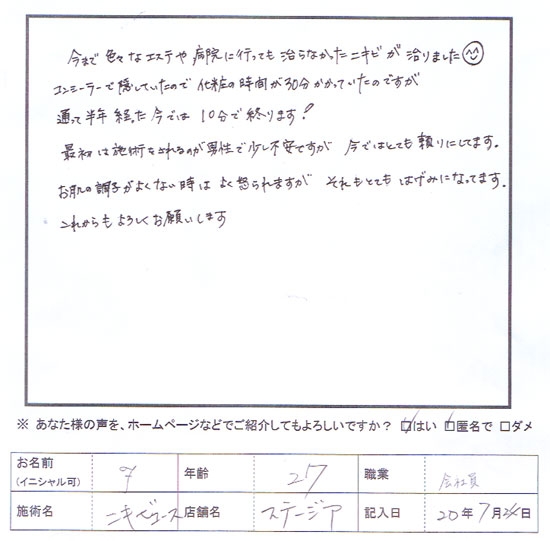 今まで色々なエステや病院に行っても治らなかったニキビが治りました
コンシーラーで隠していたので化粧の時間が30分かかっていたのですが
通って半年経った今では10分で終ります!
最初は施術をされるのが男性で少し不安ですが 今ではとても頼りにしてます。
お肌の調子がよくない時はよく怒られますが それもとてもはげみになってます。
これからもよろしくお願いします
※ あなた様の声を、ホームページなどでご紹介してもよろしいですか? ☑はい ☑匿名で □ダメ
お名前 (イニシャル可) 年齢 27 職業 会社員
施術名 ニキビコース 店舗名 ステージア 記入日 20年7月24日